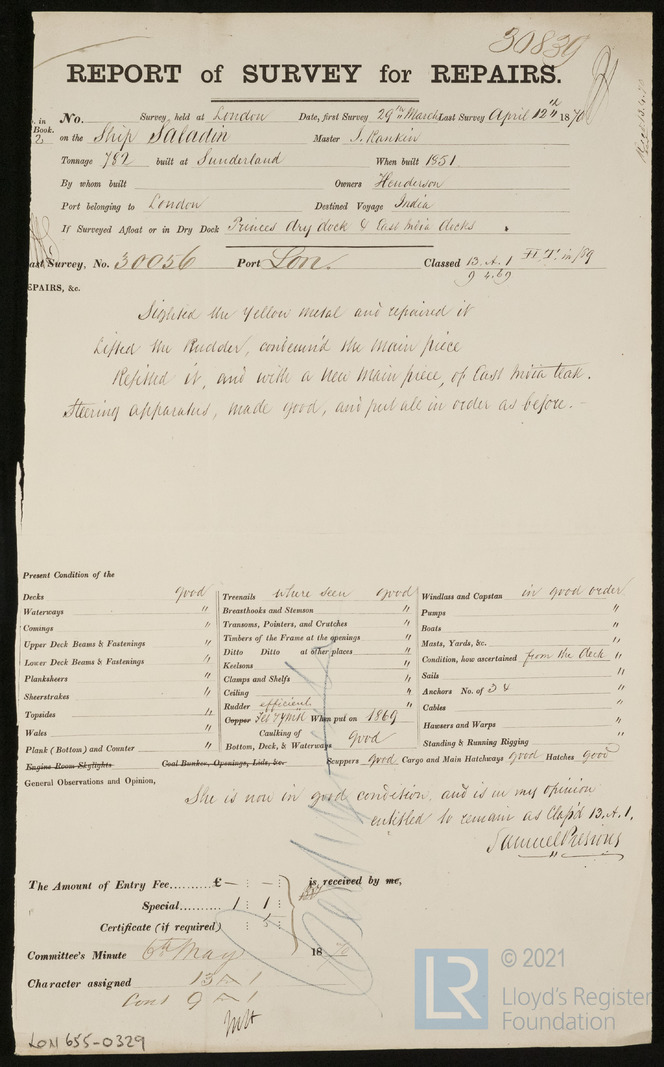 30839
REPORT of SURVEY for REPAIRS.
in Book. 2
No. Survey, held at London Date, first Survey 29th March Last Survey April 12th 1870
on the Ship Saladin Master J. Rankin
Tonnage 782 built at Sunderland When built 1851
By whom built Owners Henderson
Port belonging to London Destined Voyage India
If Surveyed Afloat or in Dry Dock Princes dry dock & East India docks
Last Survey, No. 30056 Port Lon. Classed 13.A.1
9 4.69
REPAIRS, &c.
Sighted the Yellow metal and repaired it
Lifted the Rudder, condemn'd the main piece
Refitted it, and with a new main piece, of East India teak.
Steering apparatus, made good, and put all in order as before.
Present Condition of the
Decks good Treenails where seen good Windlass and Capstan in good order
Waterways " Breasthooks and Stemson " Pumps "
Comings " Transoms, Pointers, and Crutches " Boats "
Upper Deck Beams & Fastenings " Timbers of the Frame at the openings " Masts, Yards, &c. "
Lower Deck Beams & Fastenings " Ditto Ditto at other places " Condition, how ascertained from the deck
Planksheers " Keelsons " Sails "
Sheerstrakes " Clamps and Shelfs " Anchors No. of 3 4 "
Topsides " Ceiling " Cables "
Wales " Rudder efficient Hawsers and Warps "
Plank (Bottom) and Counter " Copper When put on 1869 Standing & Running Rigging "
Caulking of Bottom, Deck, & Waterways good
Engine Room Skylights Coal Bunker, Openings, Lids, &c. Scuppers good Cargo and Main Hatchways good Hatches good
General Observations and Opinion,
She is now in good condition, and is in my opinion
entitled to remain as Class'd 13.A.1.
The Amount of Entry Fee £ - : - : is received by me,
Special 1 : 1 :
Certificate (if required) : 5 :
Committee's Minute 6th May 1870
Character assigned 13 A 1
Cont 9 A 1
LON 655-0329
LR
© 2021
Lloyd's Register
Foundation